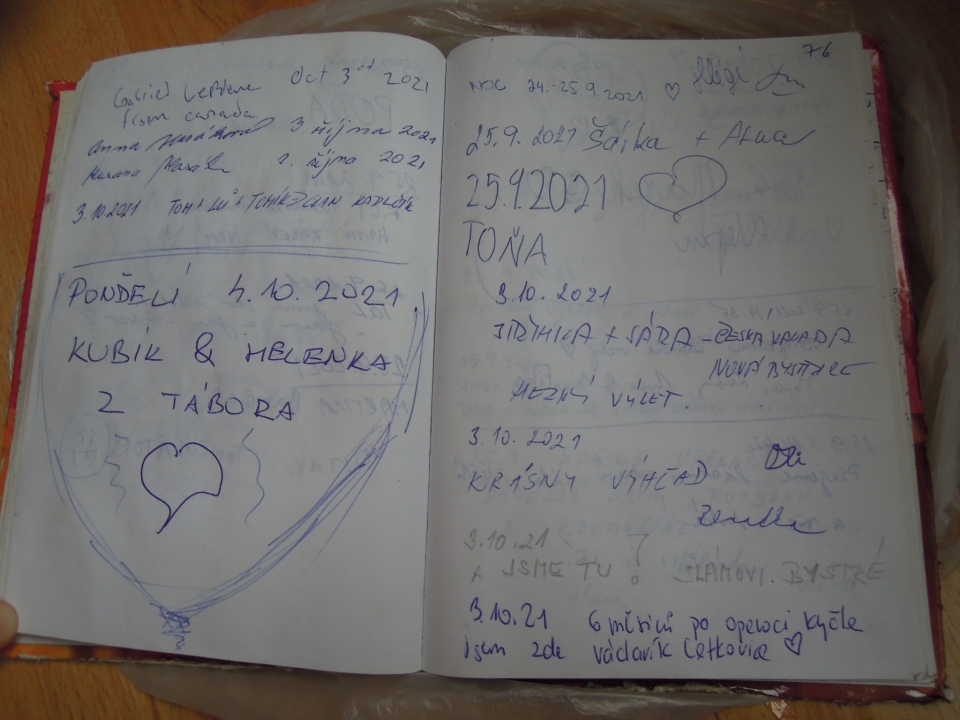 Gabriel Oct 3rd 2021
from canada
Anna 3 října 2021
3. října 2021
3.10.2021 TOM + LÚ + TONÍK
PONDĚLÍ 4.10.2021
KUBÍK & HELENKA
Z TÁBORA
76
NOC 24.-25.9.2021 ♡
25.9.2021 Šárka +
25.9.2021
TOŇA
3.10.2021
JIŘINKA + SÁRA - ČESKÁ KANADA
NOVÁ BYSTŘICE
HEZKÝ VÝLET
3.10.2021
KRÁSNÝ VÝHLED
3.10.21
A JSME TU! SLÁMOVI. BYSTRÉ
3.10.21 6 měsíců po operaci kyčle
jsem zde Václavík Letkovice ♡